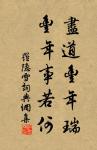 盡道豐年瑞
豐年事若何
羅隱雪詞典網集